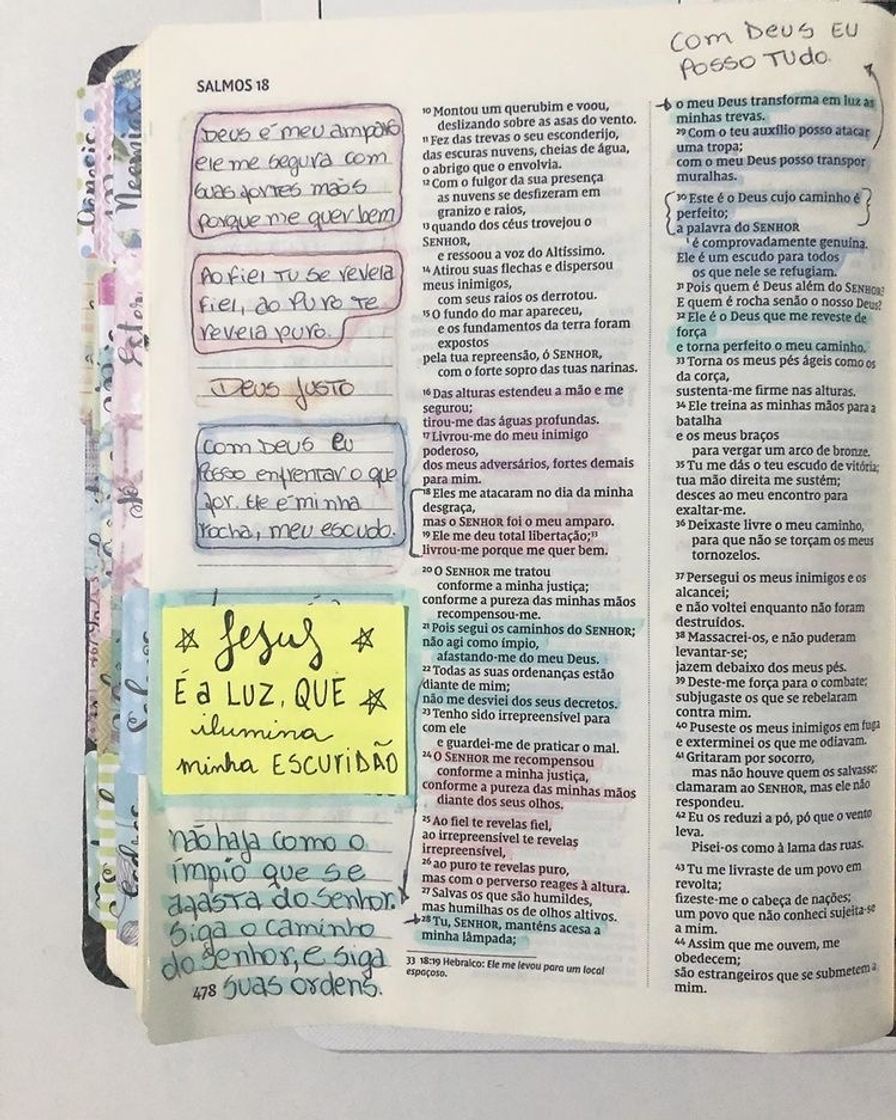 SALMOS 18
Deus é meu amparo
ele me segura com
suas fortes mãos
porque me quer bem
Ao fiel tu se revela
fiel, ao puro te
revela puro.
Deus justo
com Deus eu
posso enfrentar o que
for. Ele é minha
rocha, meu escudo.
Jesus
É a LUZ, QUE
ilumina
minha ESCURIDÃO
não haja como o
ímpio que se
afasta do Senhor.
Siga o caminho
do Senhor, e siga
suas ordens.
478
10 Montou um querubim e voou,
deslizando sobre as asas do vento.
11 Fez das trevas o seu esconderijo,
das escuras nuvens, cheias de água,
o abrigo que o envolvia.
12 Com o fulgor da sua presença
as nuvens se desfizeram em
granizo e raios,
13 quando dos céus trovejou o
SENHOR,
e ressoou a voz do Altíssimo.
14 Atirou suas flechas e dispersou
meus inimigos,
com seus raios os derrotou.
15 O fundo do mar apareceu,
e os fundamentos da terra foram
expostos
pela tua repreensão, ó SENHOR,
com o forte sopro das tuas narinas.
16 Das alturas estendeu a mão e me
segurou;
tirou-me das águas profundas.
17 Livrou-me do meu inimigo
poderoso,
dos meus adversários, fortes demais
para mim.
18 Eles me atacaram no dia da minha
desgraça,
mas o SENHOR foi o meu amparo.
19 Ele me deu total libertação;33
livrou-me porque me quer bem.
20 O SENHOR me tratou
conforme a minha justiça;
conforme a pureza das minhas mãos
recompensou-me.
21 Pois segui os caminhos do SENHOR;
não agi como ímpio,
afastando-me do meu Deus.
22 Todas as suas ordenanças estão
diante de mim;
não me desviei dos seus decretos.
23 Tenho sido irrepreensível para
com ele
e guardei-me de praticar o mal.
24 O SENHOR me recompensou
conforme a minha justiça,
conforme a pureza das minhas mãos
diante dos seus olhos.
25 Ao fiel te revelas fiel,
ao irrepreensível te revelas
irrepreensível,
26 ao puro te revelas puro,
mas com o perverso reages à altura.
27 Salvas os que são humildes,
mas humilhas os de olhos altivos.
28 Tu, SENHOR, manténs acesa a
minha lâmpada;
33 18:19 Hebraico: Ele me levou para um local
espaçoso.
com Deus EU
Posso Tudo.
o meu Deus transforma em luz as
minhas trevas.
29 Com o teu auxílio posso atacar
uma tropa;
com o meu Deus posso transpor
muralhas.
30 Este é o Deus cujo caminho é
perfeito;
a palavra do SENHOR
é comprovadamente genuína.
Ele é um escudo para todos
os que nele se refugiam.
31 Pois quem é Deus além do SENHOR?
E quem é rocha senão o nosso Deus?
32 Ele é o Deus que me reveste de
força
e torna perfeito o meu caminho.
33 Torna os meus pés ágeis como os
da corça,
sustenta-me firme nas alturas.
34 Ele treina as minhas mãos para a
batalha
e os meus braços
para vergar um arco de bronze.
35 Tu me dás o teu escudo de vitória;
tua mão direita me sustém;
desces ao meu encontro para
exaltar-me.
36 Deixaste livre o meu caminho,
para que não se torçam os meus
tornozelos.
37 Persegui os meus inimigos e os
alcancei;
e não voltei enquanto não foram
destruídos.
38 Massacrei-os, e não puderam
levantar-se;
jazem debaixo dos meus pés.
39 Deste-me força para o combate;
subjugaste os que se rebelaram
contra mim.
40 Puseste os meus inimigos em fuga
e exterminei os que me odiavam.
41 Gritaram por socorro,
mas não houve quem os salvasse;
clamaram ao SENHOR, mas ele não
respondeu.
42 Eu os reduzi a pó, pó que o vento
leva.
Pisei-os como à lama das ruas.
43 Tu me livraste de um povo em
revolta;
fizeste-me o cabeça de nações;
um povo que não conheci sujeita-se
a mim.
44 Assim que me ouvem, me
obedecem;
são estrangeiros que se submetem a
mim.
Gênesis
Neemias
Ester